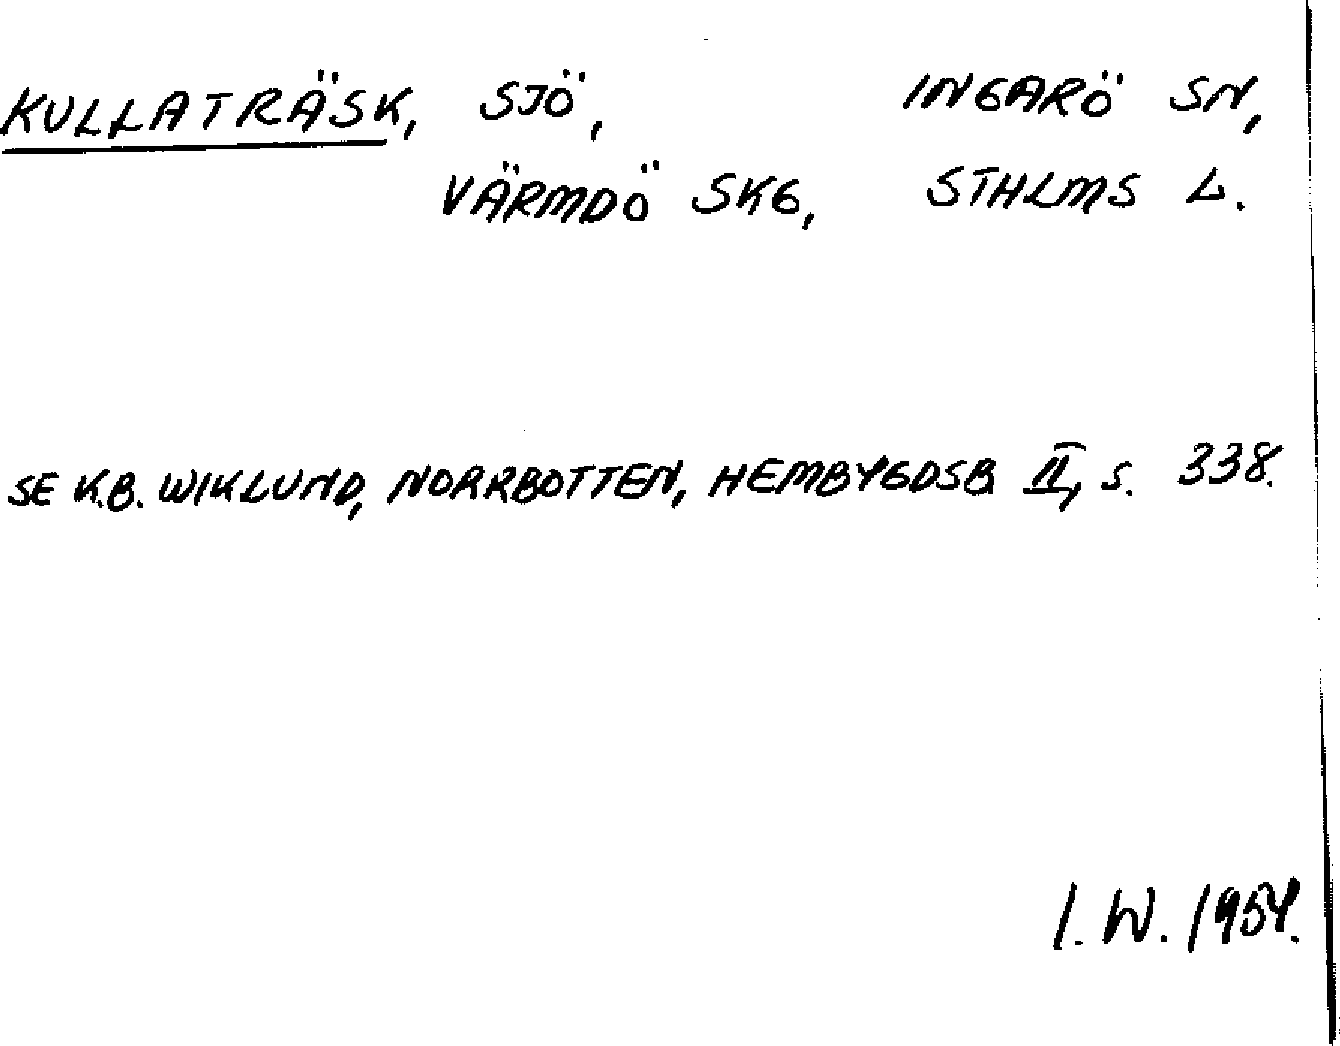 KULLATRÄSK, SJÖ, INGARÖ SN,
VÄRMDÖ SKG, STHLMS L.
SE K.B. WIKLUND, NORRBOTTEN, HEMBYGDSB. II, S. 338.
I. W. 1954.